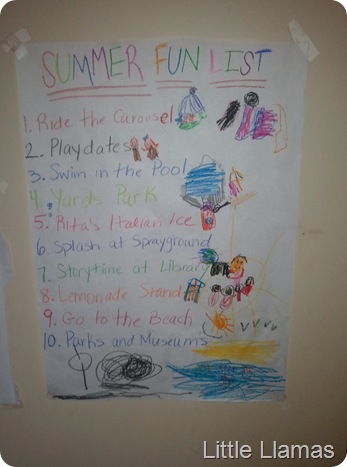 SUMMER FUN LIST
1. Ride the Carousel
2. Playdates
3. Swim in the Pool
4. Yards Park
5. Rita's Italian Ice
6. Splash at Sprayground
7. Storytime at Library
8. Lemonade Stand
9. Go to the Beach
10. Parks and Museums
Little Llamas